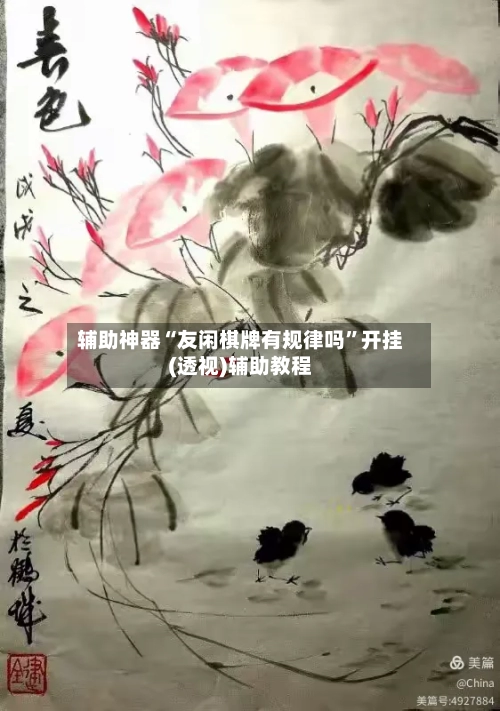 春色
戊戌之夏於鹤城
辅助神器“友闲棋牌有规律吗”开挂
(透视)辅助教程
美篇
@China
美篇号:4927884